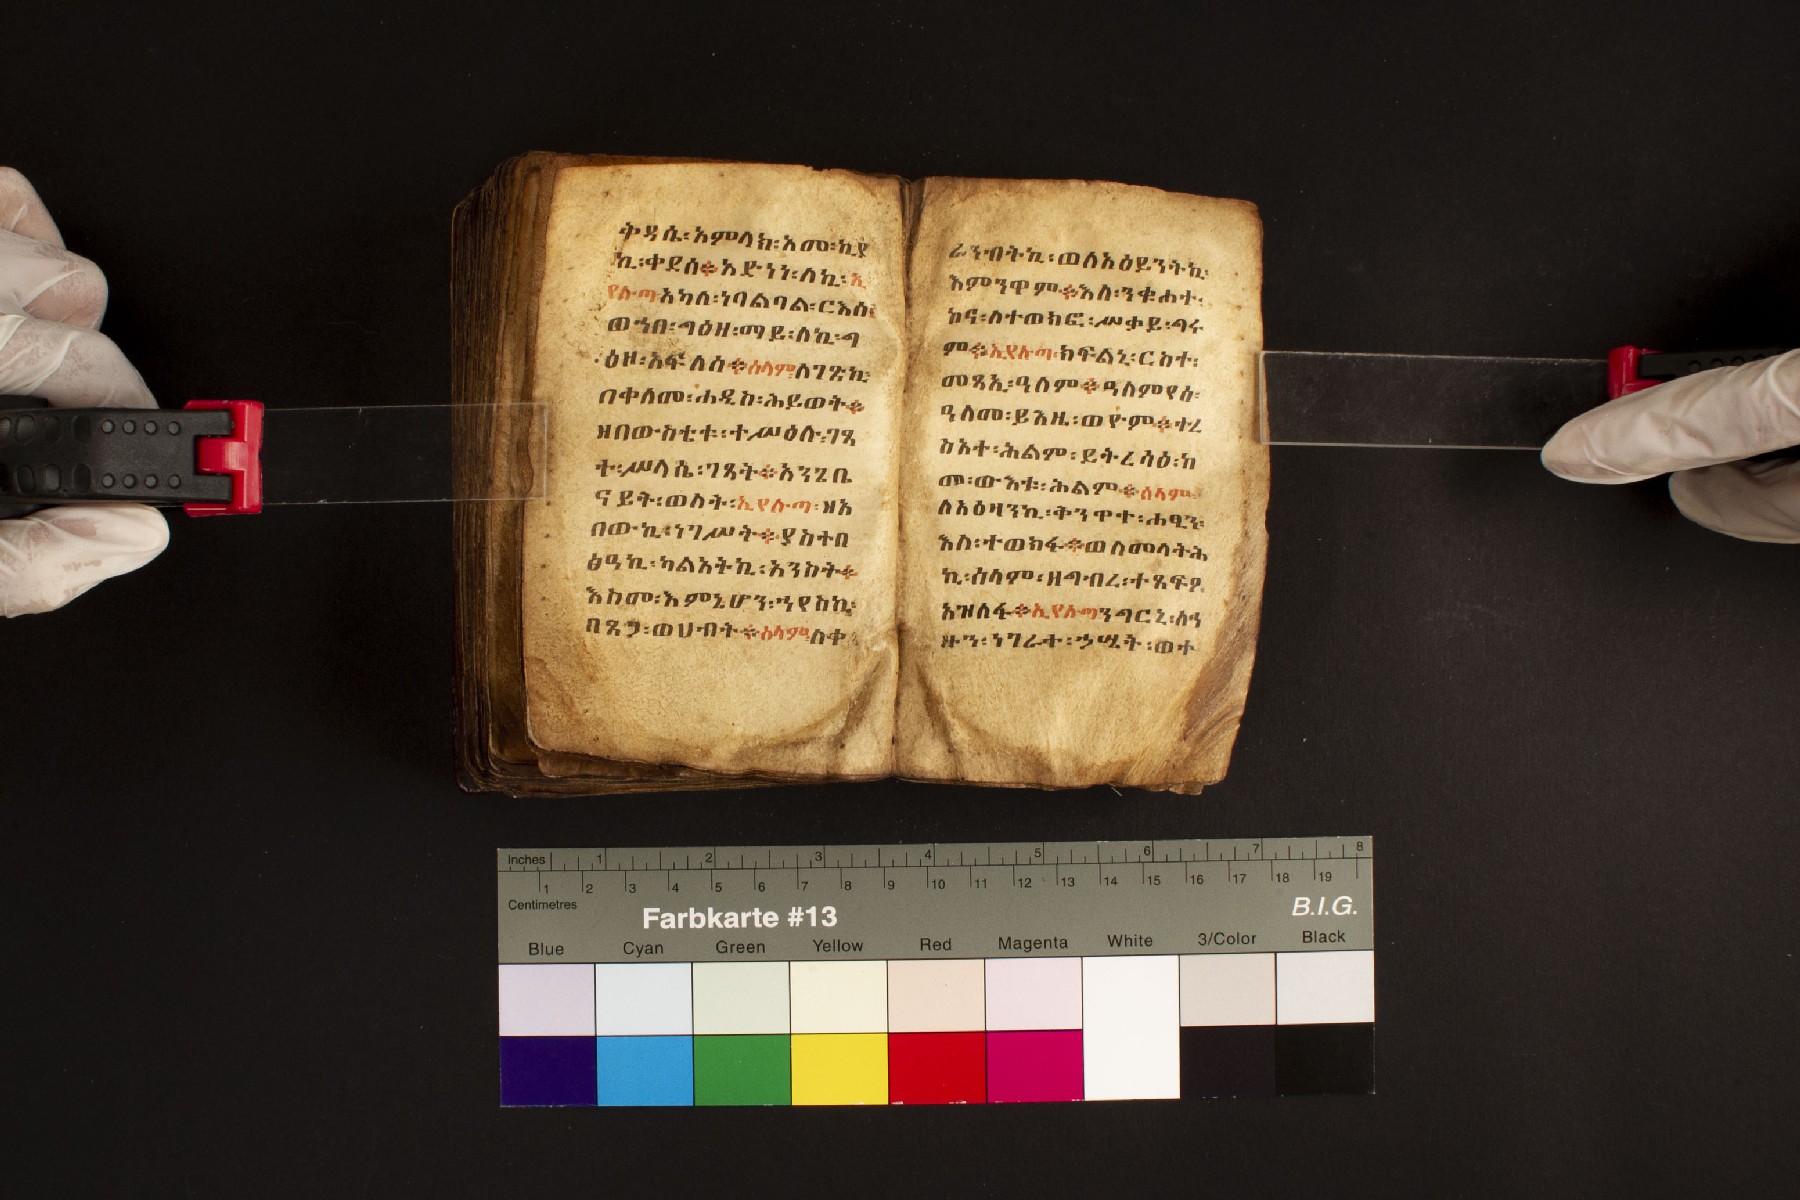 ቅዳሴ፡አምላክ፡አመ፡ኪያ
ኪ፡ቀደሰ፨አድኅነ፡ለኪ፡ኢ
የሉጣ፡አካለ፡ነባልባል፡ርእሰ፡
ወኀበ፡ግዕዘ፡ማይ፡ለኪ፡ግ
ዕዘ፡አፍለሰ፨ሰላም፡ለገጽኪ፡
በቀለመ፡ሐዲስ፡ሕይወት፨
ዘበውስቲቱ፡ተሥዕሉ፡ገጸ
ተ፡ሥላሴ፡ገጻት፨አንጌቤ
ናይት፡ወለት፡ኢየሉጣ፡ዘአ
በውኪ፡ነገሥት፨ያስተበ
ፅዓኪ፡ካልአትኪ፡አንስት፨
እስመ፡እምኔሆን፡ኀየስኪ፡
በጸጋ፡ወሀብት፨ሰላም፡ለቀ
ራንብትኪ፡ወለአዕይንትኪ፡
እምንዋም፨እለ፡ንቁሐተ፡
ከናፍ፡ለተወክፎ፡ሥቃይ፡ግሩ
ም፨ኢየሉጣ፡ክፍልኒ፡ርስተ፡
መጻኢ፡ዓለም፨ዓለምየሰ፡
ዓለመ፡ይእዜ፡ወዮም፨ተረ
ስአተ፡ሕልም፡ይትረሳዕ፡ከ
መ፡ውእቱ፡ሕልም፨ሰላም
ለአዕዛንኪ፡ቅንዋተ፡ሐፂን፡
እለ፡ተወክፋ፨ወለመላትሕ
ኪ፡ሰላም፡ዘግብረ፡ተጸፍዖ
አዝለፋ፨ኢየሉጣ፡ንግርኒ፡ለኀ
ዙን፡ነገራተ፡ኃሤት፡ወተ
Inches 1 2 3 4 5 6 7 8
1 2 3 4 5 6 7 8 9 10 11 12 13 14 15 16 17 18 19
Centimetres
Farbkarte #13
B.I.G.
Blue Cyan Green Yellow Red Magenta White 3/Color Black